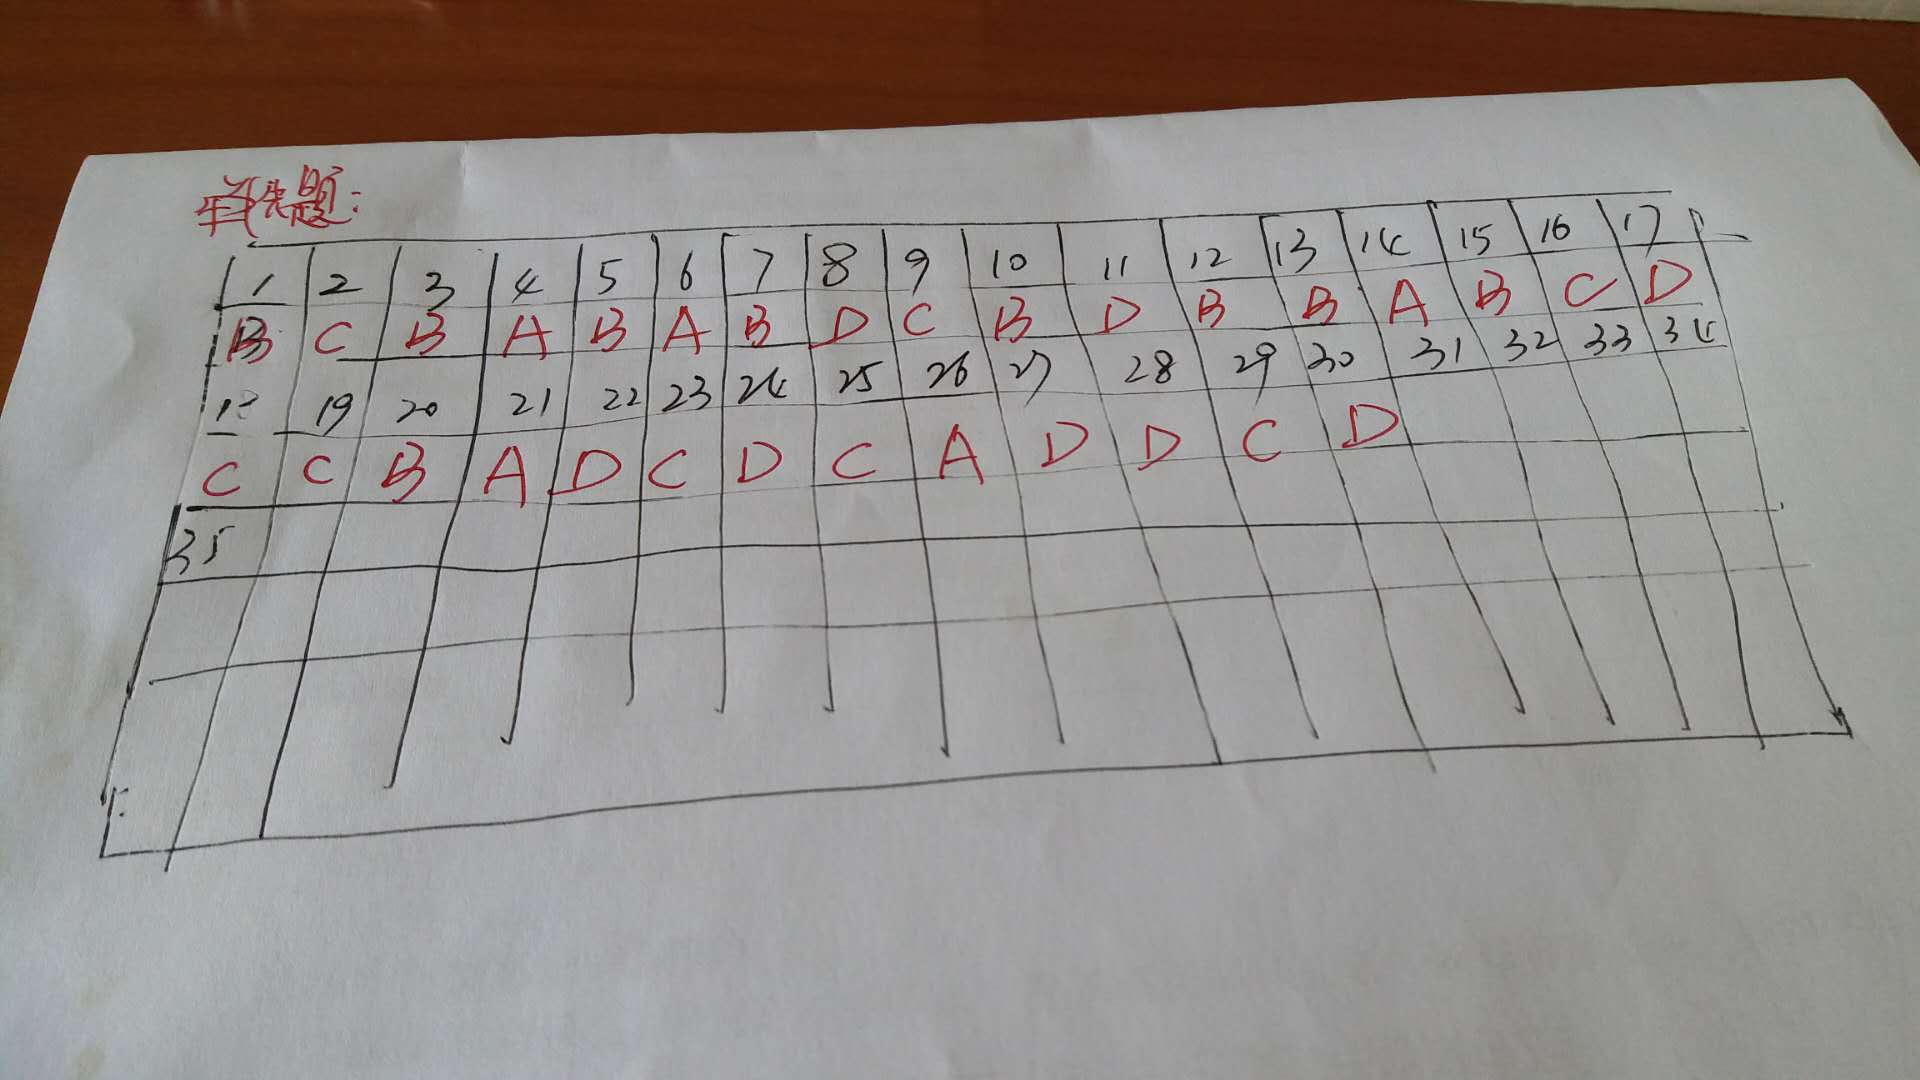 单选题:
1 2 3 4 5 6 7 8 9 10 11 12 13 14 15 16 17
B C B A B A B D C B D B B A B C D
18 19 20 21 22 23 24 25 26 27 28 29 30 31 32 33 34
C C B A D C D C A D D C D
35